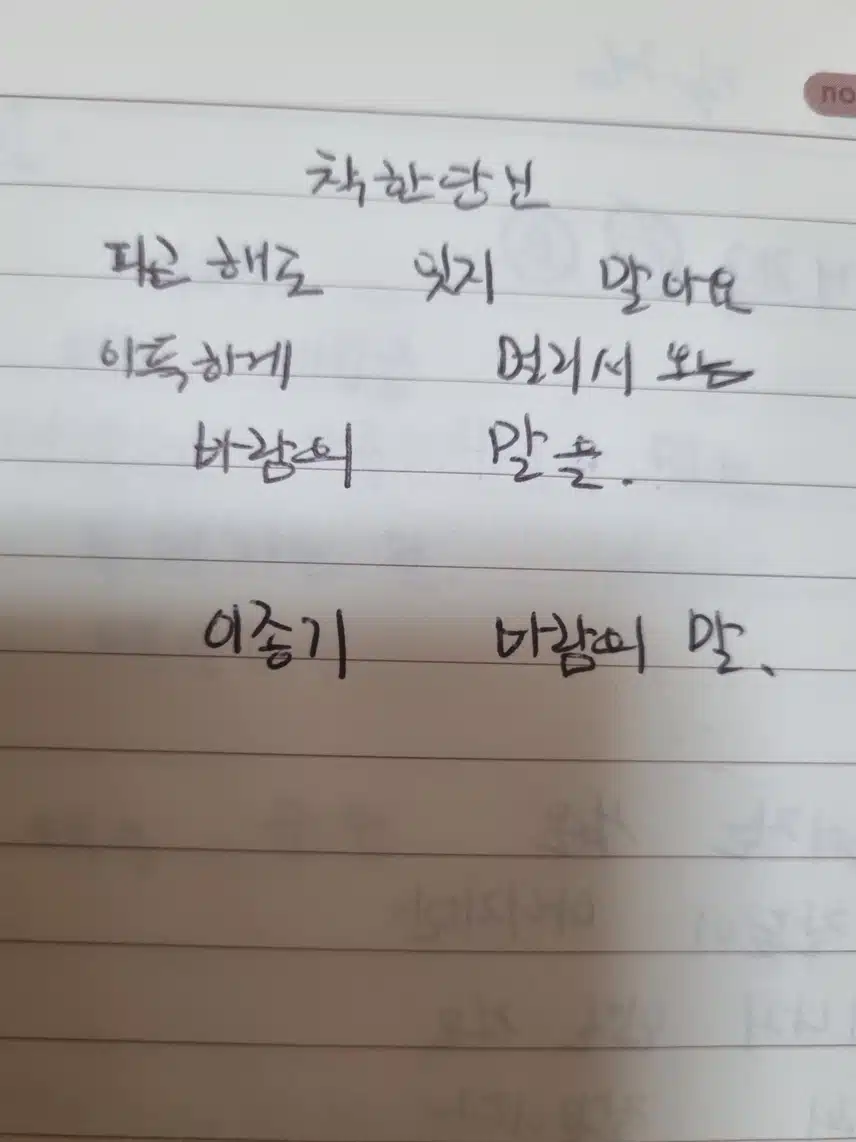 no
착한당신
피곤해도 잊지 말아요
아득하게 멀리서 오는
바람의 말을.
이종기 바람의 말.